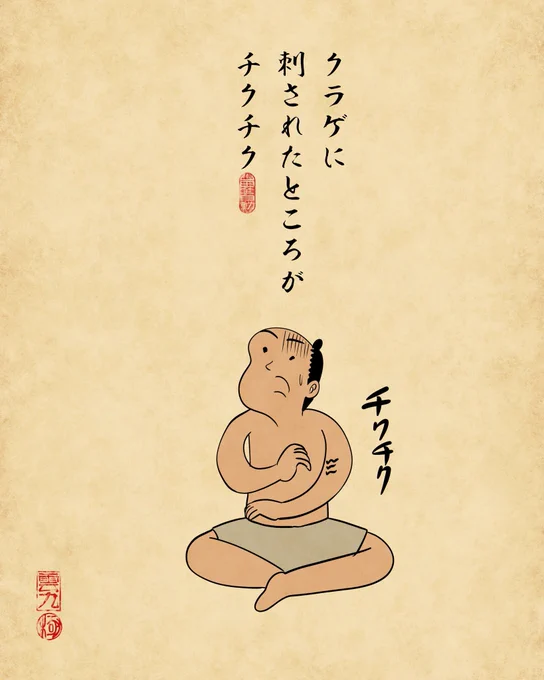 クラゲに
刺されたところが
チクチク
チクチク